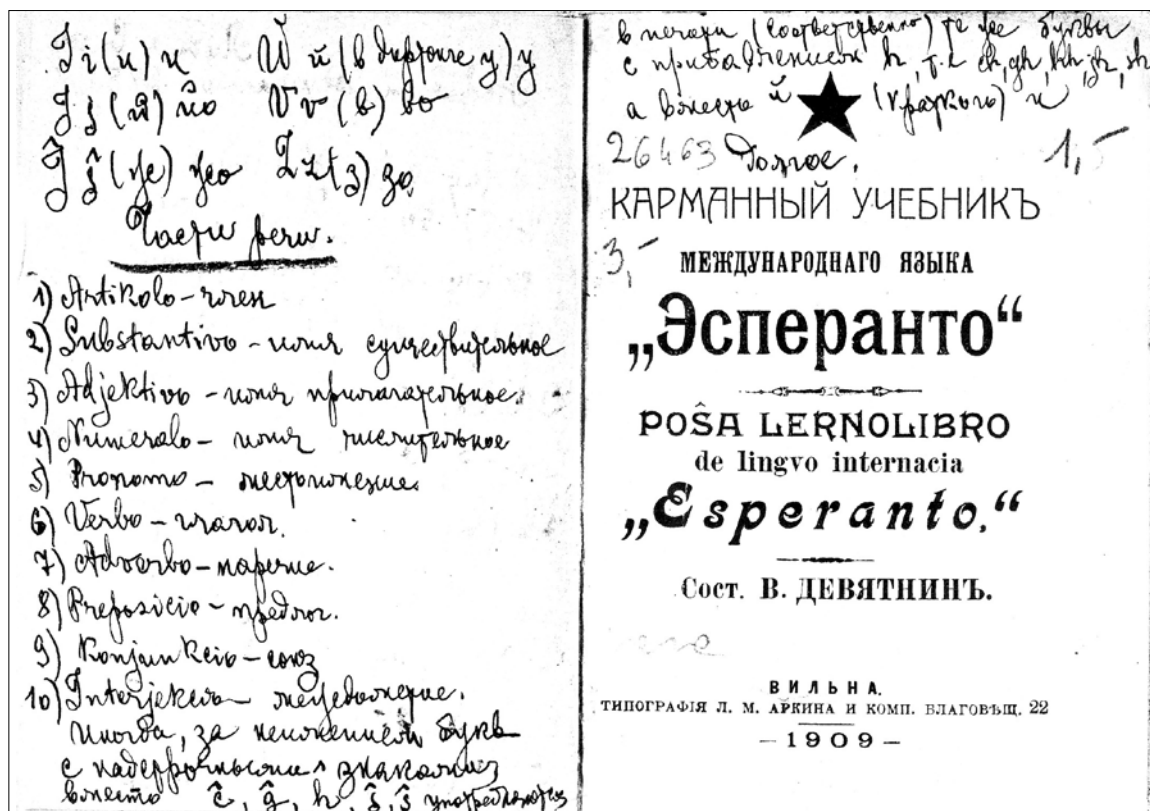 I i (и) и Ŭ ŭ (в дифтонге у) у
J j (й) йо V v (в) во
Ĵ ĵ (же) жо Z z (з) зо
Части речи.
1) Artikolo – член
2) Substantivo – имя существительное
3) Adjektivo – имя прилагательное.
4) Numeralo – имя числительное
5) Pronomo – местоимение.
6) Verbo – глагол.
7) Adverbo – наречие.
8) Prepozicio – предлог.
9) Konjunkcio – союз
10) Interjekcio – междометие.
Иногда, за неимением букв
с надстрочными ^ знаками
вместо ĉ, ĝ, ĥ, ĵ, ŝ употребляются
в печати (соответственно) те же буквы
с прибавлением h, т.е. ch, gh, hh, jh, sh
а вместо й (краткого) и
26463 долгое. 1,-
КАРМАННЫЙ УЧЕБНИКЪ
3,-
МЕЖДУНАРОДНАГО ЯЗЫКА
„Эсперанто“
POŜA LERNOLIBRO
de lingvo internacia
„Esperanto.“
Сост. В. ДЕВЯТНИНЪ.
ВИЛЬНА.
ТИПОГРАФІЯ Л. М. АРКИНА И КОМП. БЛАГОВѢЩ. 22
– 1909 –